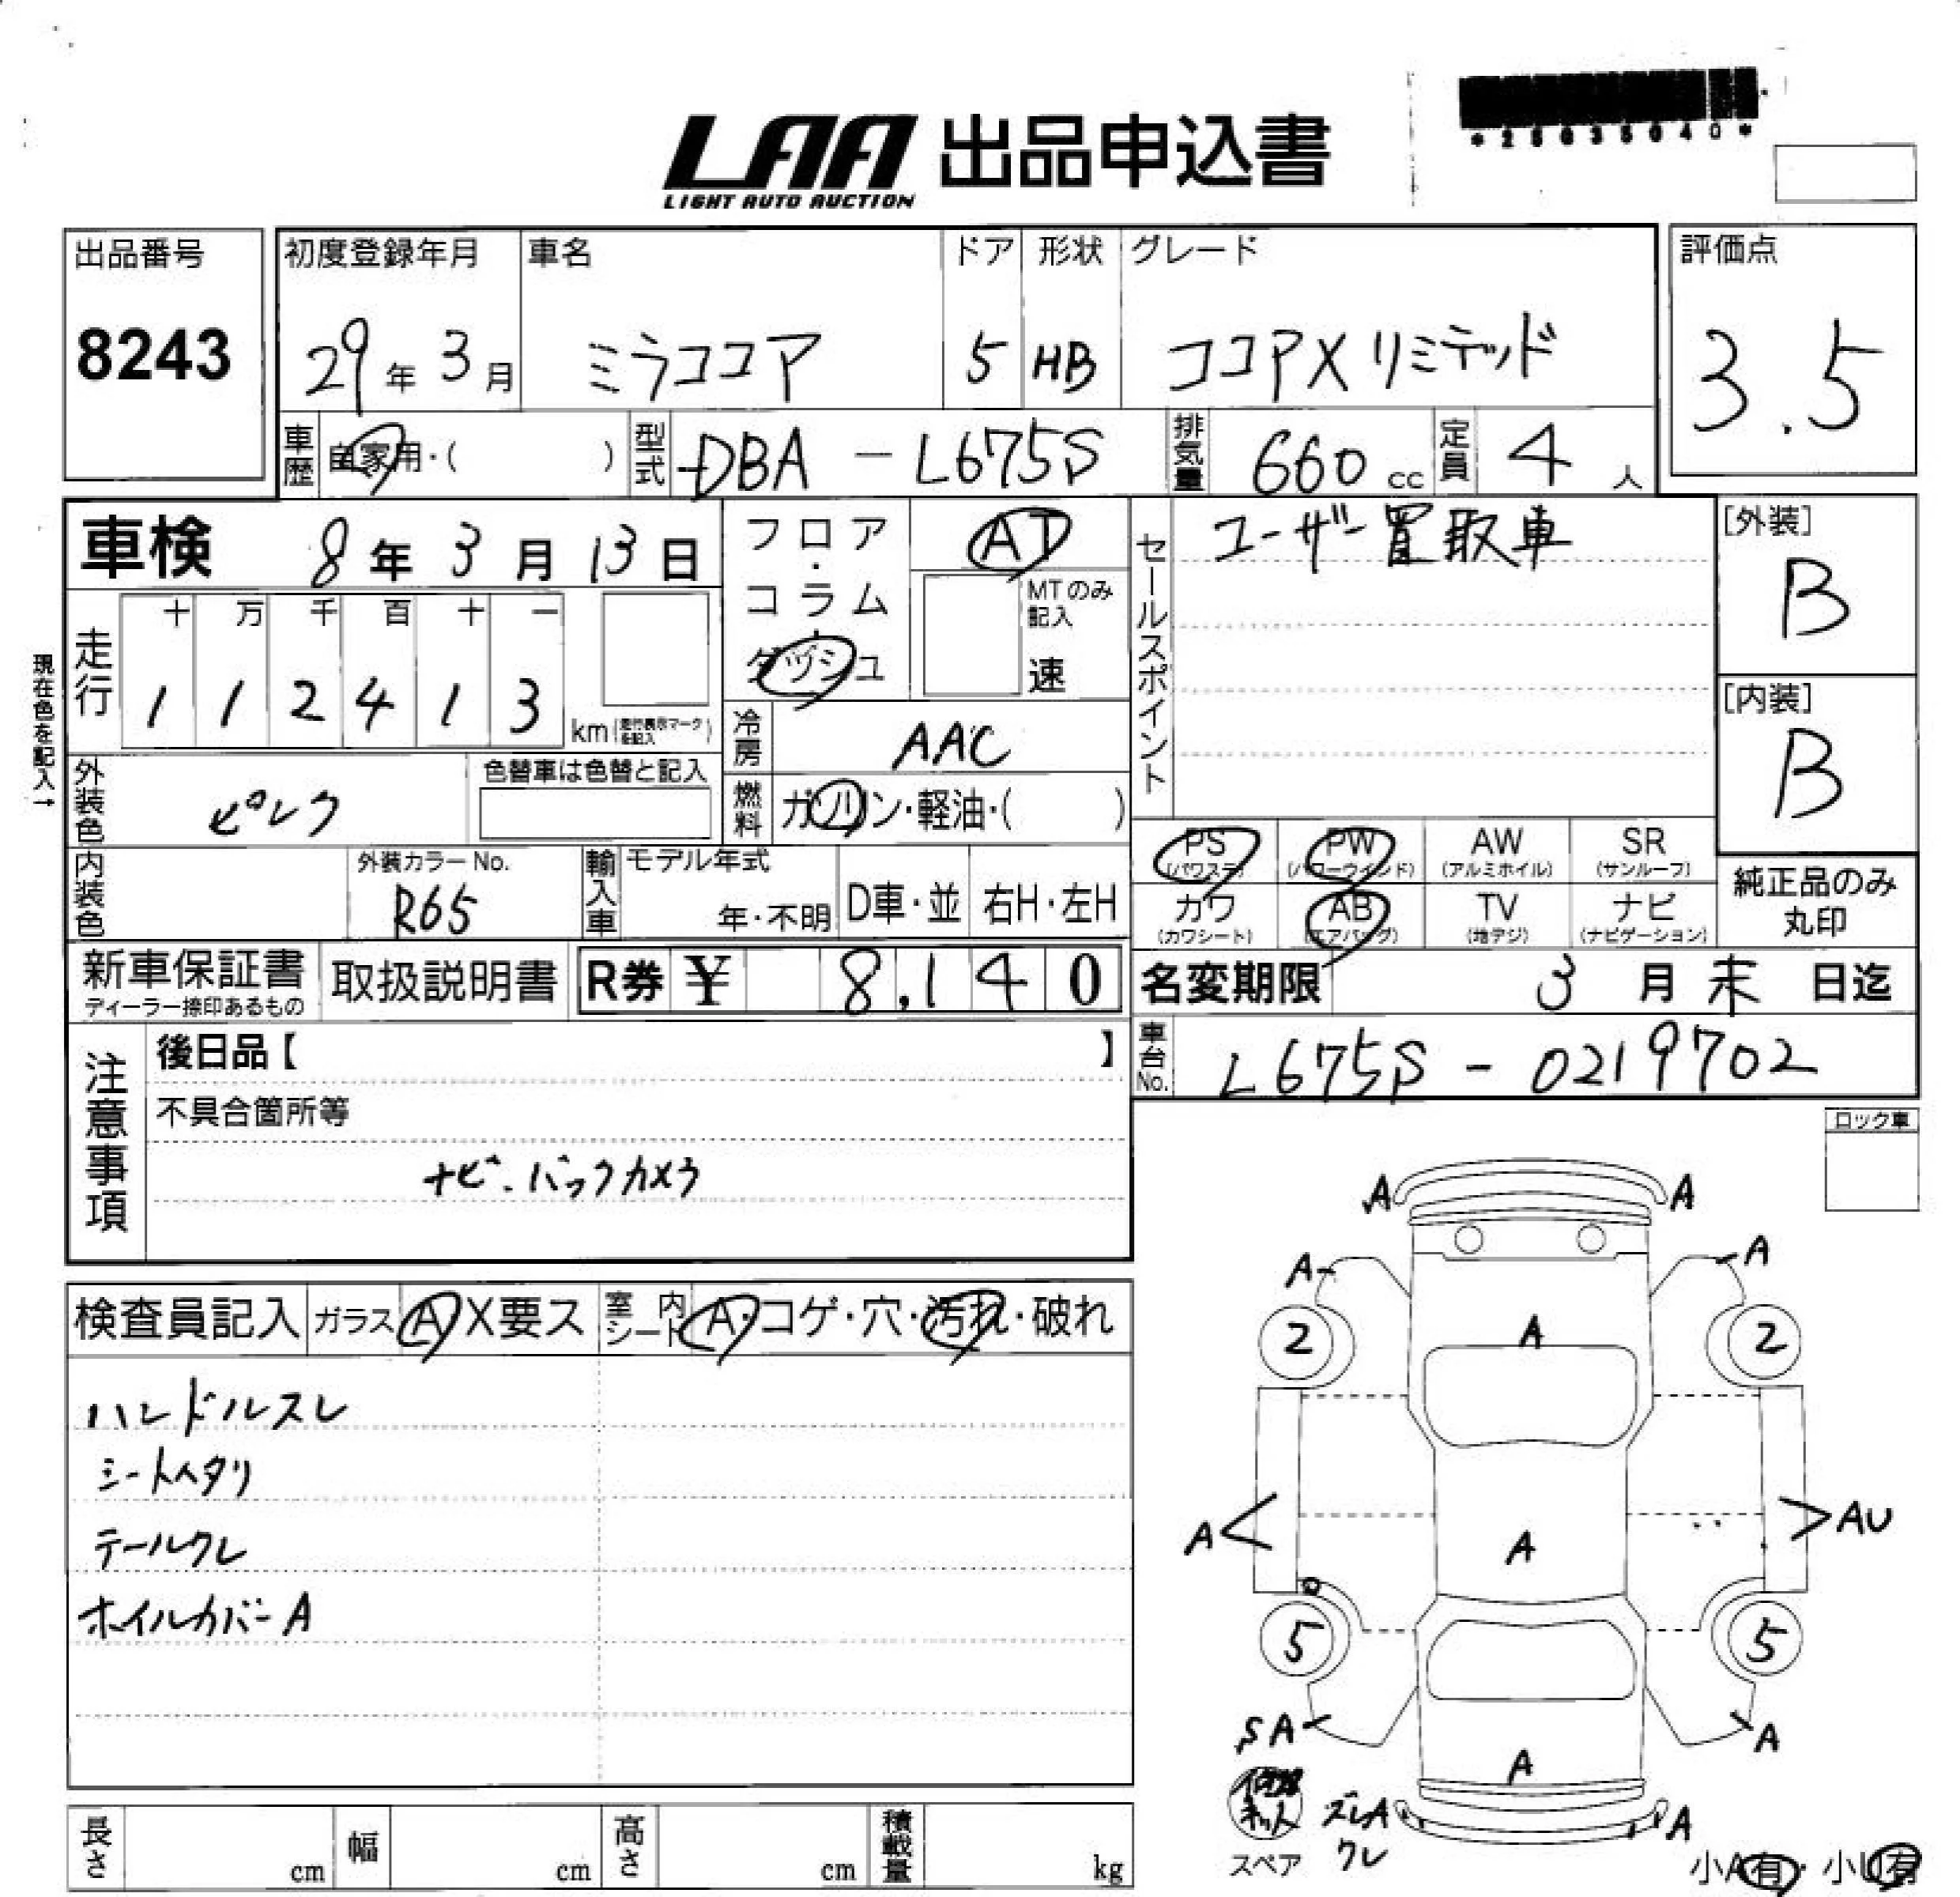 *25035040*
LAA 出品申込書
LIGHT AUTO AUCTION
出品番号
8243
初度登録年月
29年3月
車名
ミラココア
ドア
5
形状
HB
グレード
ココアXリミテッド
評価点
3.5
車歴
自家用・( )
型式
DBA-L675S
排気量
660cc
定員
4人
車検 8年3月13日
フロア・コラム・ダッシュ
AT
MTのみ記入
速
セールスポイント
ユーザー買取車
[外装]
B
[内装]
B
現在色を記入→
走行
十 万 千 百 十 一
1 1 2 4 1 3
km(走行表示マークを記入)
冷房
AAC
外装色
ピンク
色替車は色替と記入
燃料
ガソリン・軽油・( )
内装色
外装カラーNo.
R65
輸入車
モデル年式
年・不明
D車・並
右H・左H
PS (パワステ)
PW (パワーウインド)
AW (アルミホイル)
SR (サンルーフ)
カワ (カワシート)
AB (エアバッグ)
TV (地デジ)
ナビ (ナビゲーション)
純正品のみ丸印
新車保証書
ディーラー捺印あるもの
取扱説明書
R券 ¥ 8,140
名変期限 3月末日迄
車台No.
L675S-0219702
注意事項
後日品【 】
不具合箇所等
ナビ・バックカメラ
ロック車
検査員記入
ガラス A X要ス
室内シート A・コゲ・穴・汚れ・破れ
ハンドルスレ
シートヘタリ
テールワレ
ホイルカバーA
A A
A A
2 A 2
A A AU
5 5
SA A
A
ズレA A
ワレ
スペア
小A有・小U有
長さ cm
幅 cm
高さ cm
積載量 kg